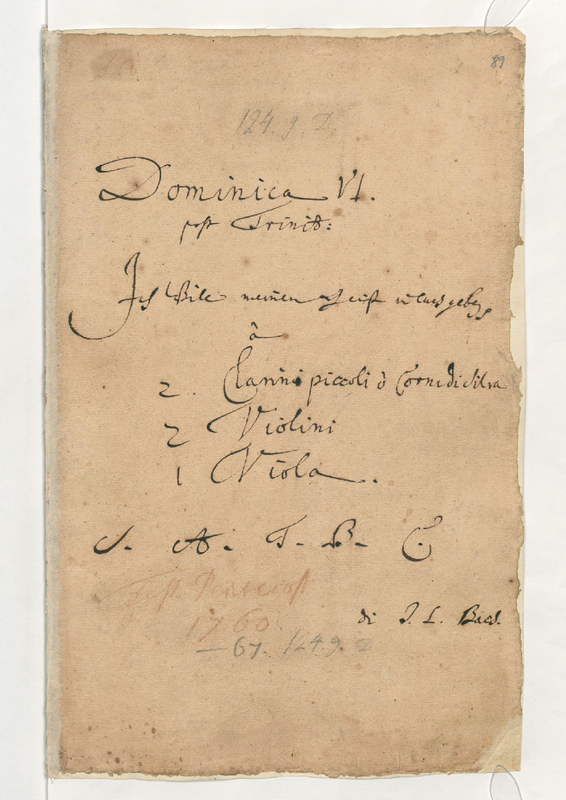 89
124. g. D.
Dominica VI.
post Trinit:
Ich Will meinen Geist in Euch geben
â
2. Clarini piccoli ô Corne di Silva
2 Violini
1 Viola.
S. A. T. B. C.
fest Pentecost
1760
di J. L. Bach.
— 67. 124. g. D